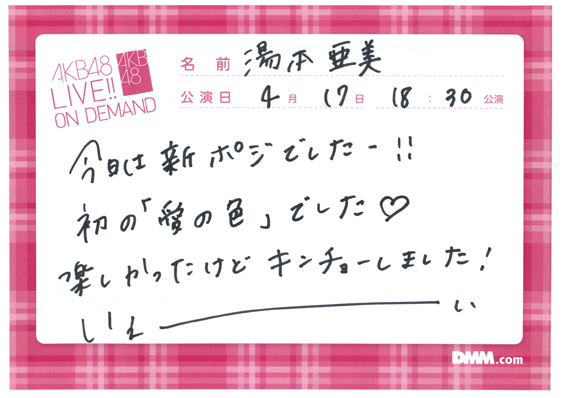 AKB48
LIVE!!
ON DEMAND
AKB
48
名前 湯本亜美
公演日 4月17日 18:30公演
今日は新ポジでしたー!!
初の「愛の色」でした♡
楽しかったけどキンチョーしました!
いえ――――い
DMM.com